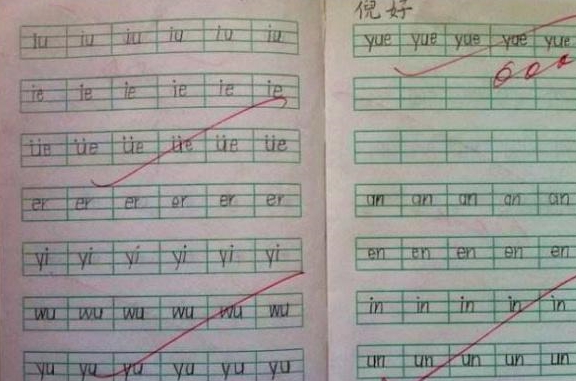 iu iu iu iu iu iu
ie ie ie ie ie ie
üe üe üe üe üe üe
er er er er er er
yi yi yi yi yi yi
wu wu wu wu wu wu
yu yu yu yu yu yu
倪好
yue yue yue yue yue
an an an an an
en en en en en
in in in in in
un un un un un